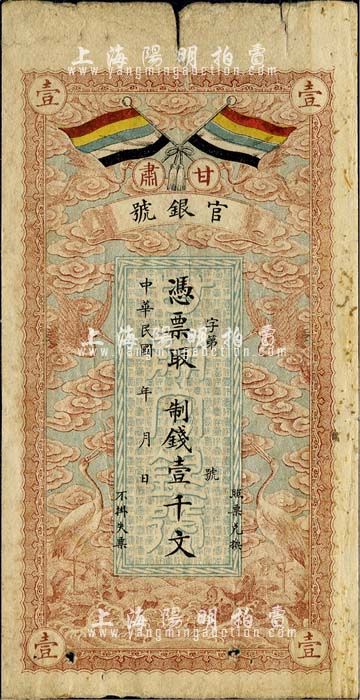 上海陽明拍賣
www.yangmingauction.com
壹 壹
甘肅
官銀號
字第 號
憑票取制錢壹千文
中華民國 年 月 日
認票兌換
不掛失票
上海陽明拍賣
www.yangmingauction.com
壹 壹
上海陽明拍賣
www.yangmingauction.com